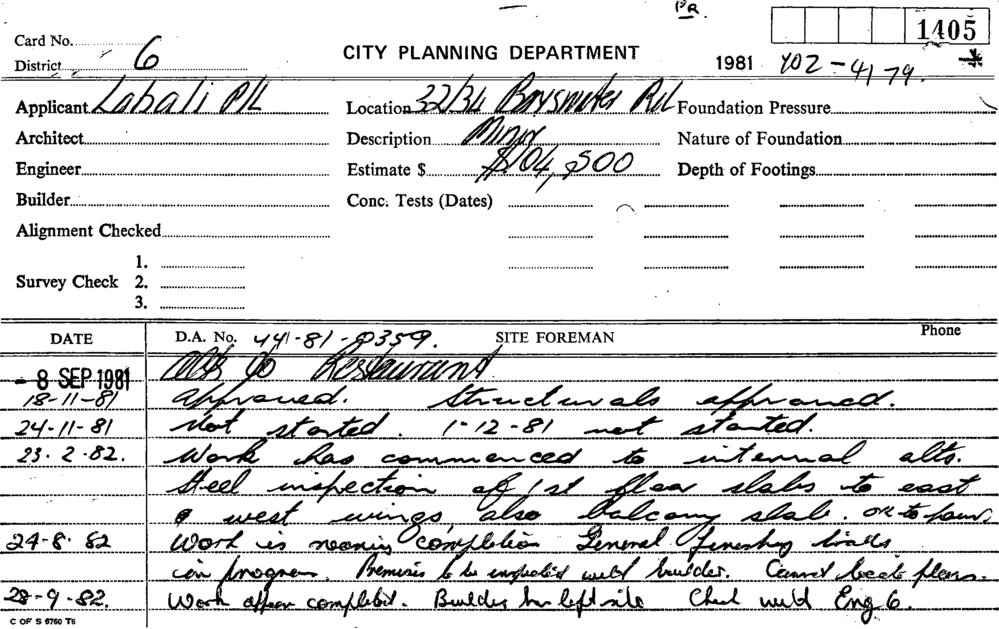 PR.
1405
Card No.
District 6
CITY PLANNING DEPARTMENT
1981 402-4179. *
Applicant Labali P/L
Location 32/34 Bayswater Rd
Foundation Pressure
Architect
Description Minor
Nature of Foundation
Engineer
Estimate $ $104,500
Depth of Footings
Builder
Conc. Tests (Dates)
Alignment Checked
Survey Check 1.
2.
3.
DATE
D.A. No. 44-81-0359.
SITE FOREMAN
Phone
- 8 SEP 1981 to Restaurant
18-11-81 Approved. Structurals approved.
24-11-81 Not started. 1-12-81 not started.
23.2.82. Work has commenced to internal alts.
Steel inspection of 1st floor slabs to east
& west wings, also balcony slab. OK to pour.
24-8.82 Work is nearing completion General finishing trades
in progress. Premises to be inspected with builder. Cannot locate plans.
28-9.82. Work appears completed. Builder has left site Check with Eng 6.
C OF S 6760 T6